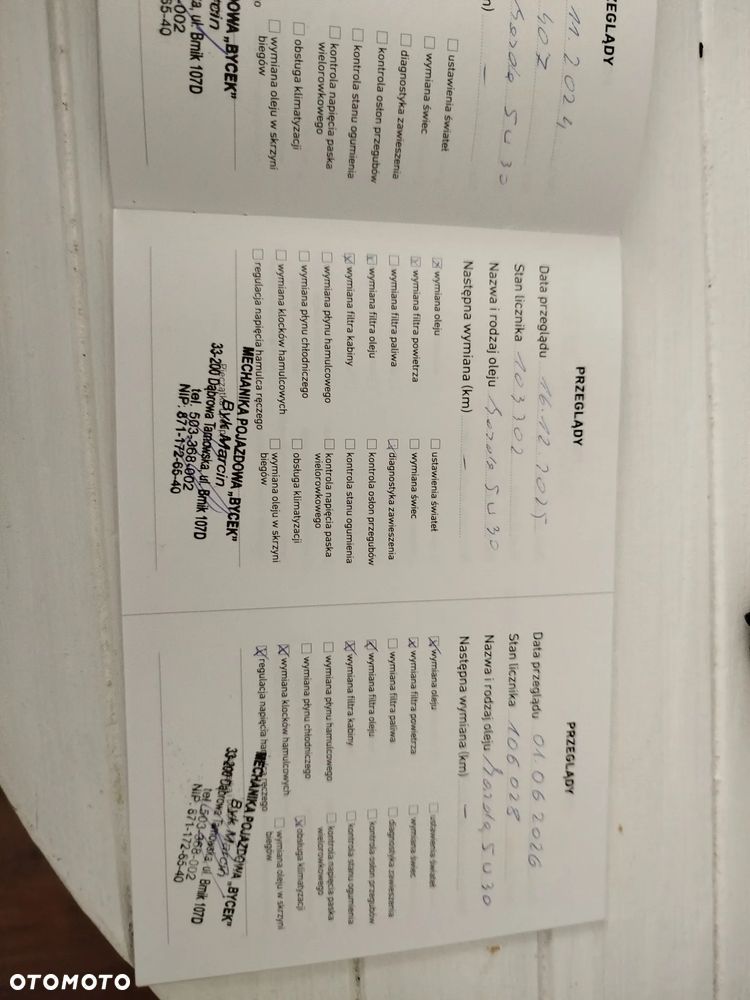 ZEGLĄDY
11.2024
5W30
ustawienia świateł
wymiana świec
diagnostyka zawieszenia
kontrola osłon przegubów
kontrola stanu ogumienia
kontrola napięcia paska
wielorowkowego
obsługa klimatyzacji
wymiana oleju w skrzyni
biegów
OWA „BYCEK”
ul. Brnik 107D
-002
65-40
PRZEGLĄDY
Data przeglądu 16.12.2025
Stan licznika 103202
Nazwa i rodzaj oleju 5W30
Następna wymiana (km) —
wymiana oleju
wymiana filtra powietrza
wymiana filtra paliwa
wymiana filtra oleju
wymiana filtra kabiny
wymiana płynu hamulcowego
wymiana płynu chłodniczego
wymiana klocków hamulcowych
regulacja napięcia hamulca ręcznego
ustawienia świateł
wymiana świec
diagnostyka zawieszenia
kontrola osłon przegubów
kontrola stanu ogumienia
kontrola napięcia paska
wielorowkowego
obsługa klimatyzacji
wymiana oleju w skrzyni
biegów
MECHANIKA POJAZDOWA „BYCEK”
Byk Marcin
33-200 Dąbrowa Tarnowska, ul. Brnik 107D
tel. 503-368-002
NIP: 871-172-65-40
PRZEGLĄDY
Data przeglądu 01.06.2026
Stan licznika 106028
Nazwa i rodzaj oleju 5W30
Następna wymiana (km) —
wymiana oleju
wymiana filtra powietrza
wymiana filtra paliwa
wymiana filtra oleju
wymiana filtra kabiny
wymiana płynu hamulcowego
wymiana płynu chłodniczego
wymiana klocków hamulcowych
regulacja napięcia hamulca ręcznego
ustawienia świateł
wymiana świec
diagnostyka zawieszenia
kontrola osłon przegubów
kontrola stanu ogumienia
kontrola napięcia paska
wielorowkowego
obsługa klimatyzacji
wymiana oleju w skrzyni
biegów
MECHANIKA POJAZDOWA „BYCEK”
Byk Marcin
33-200 Dąbrowa Tarnowska, ul. Brnik 107D
tel. 503-368-002
NIP: 871-172-65-40
OTOMOTO